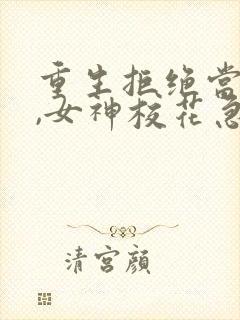 重生拒绝当
,女神校花急
清宫顔